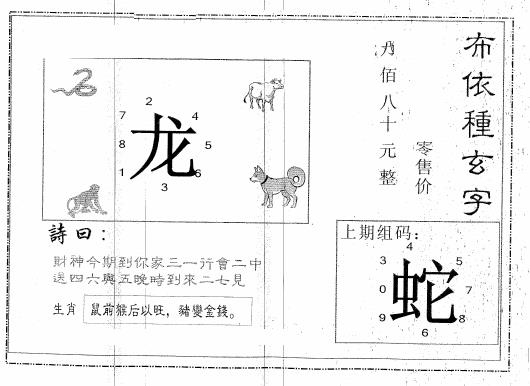 布依種玄字
佰八十元整
零售价
2
7
4
8
龙
5
1
6
3
詩曰:
財神今期到你家三一行會二中
送四六與五晚時到來二七見
生肖 鼠前猴后以旺,豬變金錢。
上期组码:
4
3
5
0
蛇
7
9
8
6